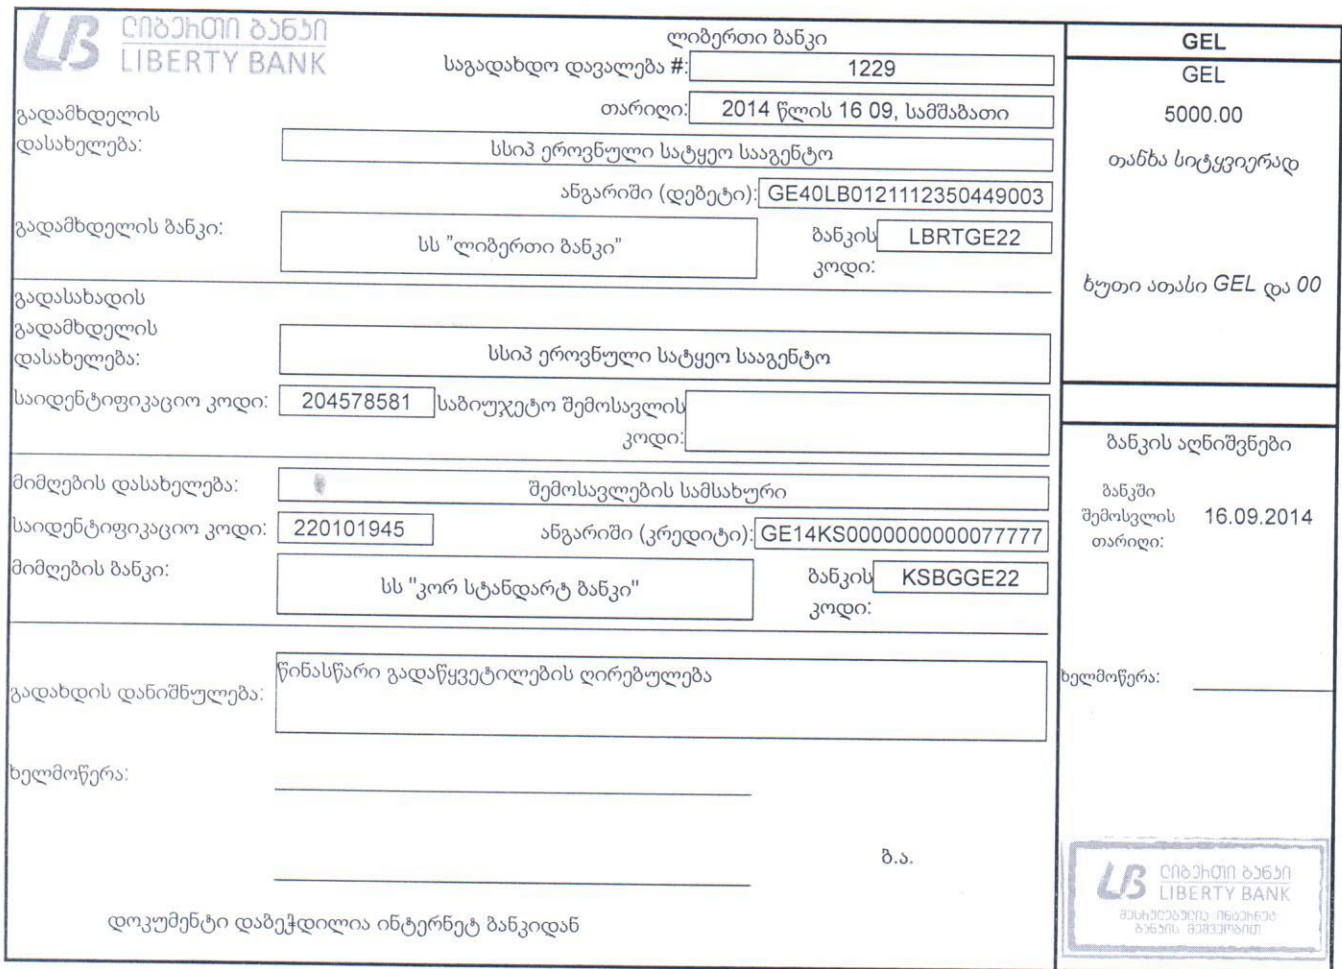 ლიბერთი ბანკი
LIBERTY BANK
ლიბერთი ბანკი
საგადახდო დავალება #: 1229
თარიღი: 2014 წლის 16 09, სამშაბათი
გადამხდელის
დასახელება: სსიპ ეროვნული სატყეო სააგენტო
ანგარიში (დებეტი): GE40LB0121112350449003
გადამხდელის ბანკი: სს "ლიბერთი ბანკი" ბანკის LBRTGE22
კოდი:
გადასახადის
გადამხდელის
დასახელება: სსიპ ეროვნული სატყეო სააგენტო
საიდენტიფიკაციო კოდი: 204578581 საბიუჯეტო შემოსავლის
კოდი:
მიმღების დასახელება: შემოსავლების სამსახური
საიდენტიფიკაციო კოდი: 220101945 ანგარიში (კრედიტი): GE14KS0000000000077777
მიმღების ბანკი: სს "კორ სტანდარტ ბანკი" ბანკის KSBGGE22
კოდი:
წინასწარი გადაწყვეტილების ღირებულება
გადახდის დანიშნულება:
ხელმოწერა:
ბ.ა.
დოკუმენტი დაბეჭდილია ინტერნეტ ბანკიდან
GEL
GEL
5000.00
თანხა სიტყვიერად
ხუთი ათასი GEL და 00
ბანკის აღნიშვნები
ბანკში
შემოსვლის 16.09.2014
თარიღი:
ხელმოწერა:
ლიბერთი ბანკი
LIBERTY BANK
შესრულებულია ინტერნეტ
ბანკის მეშვეობით